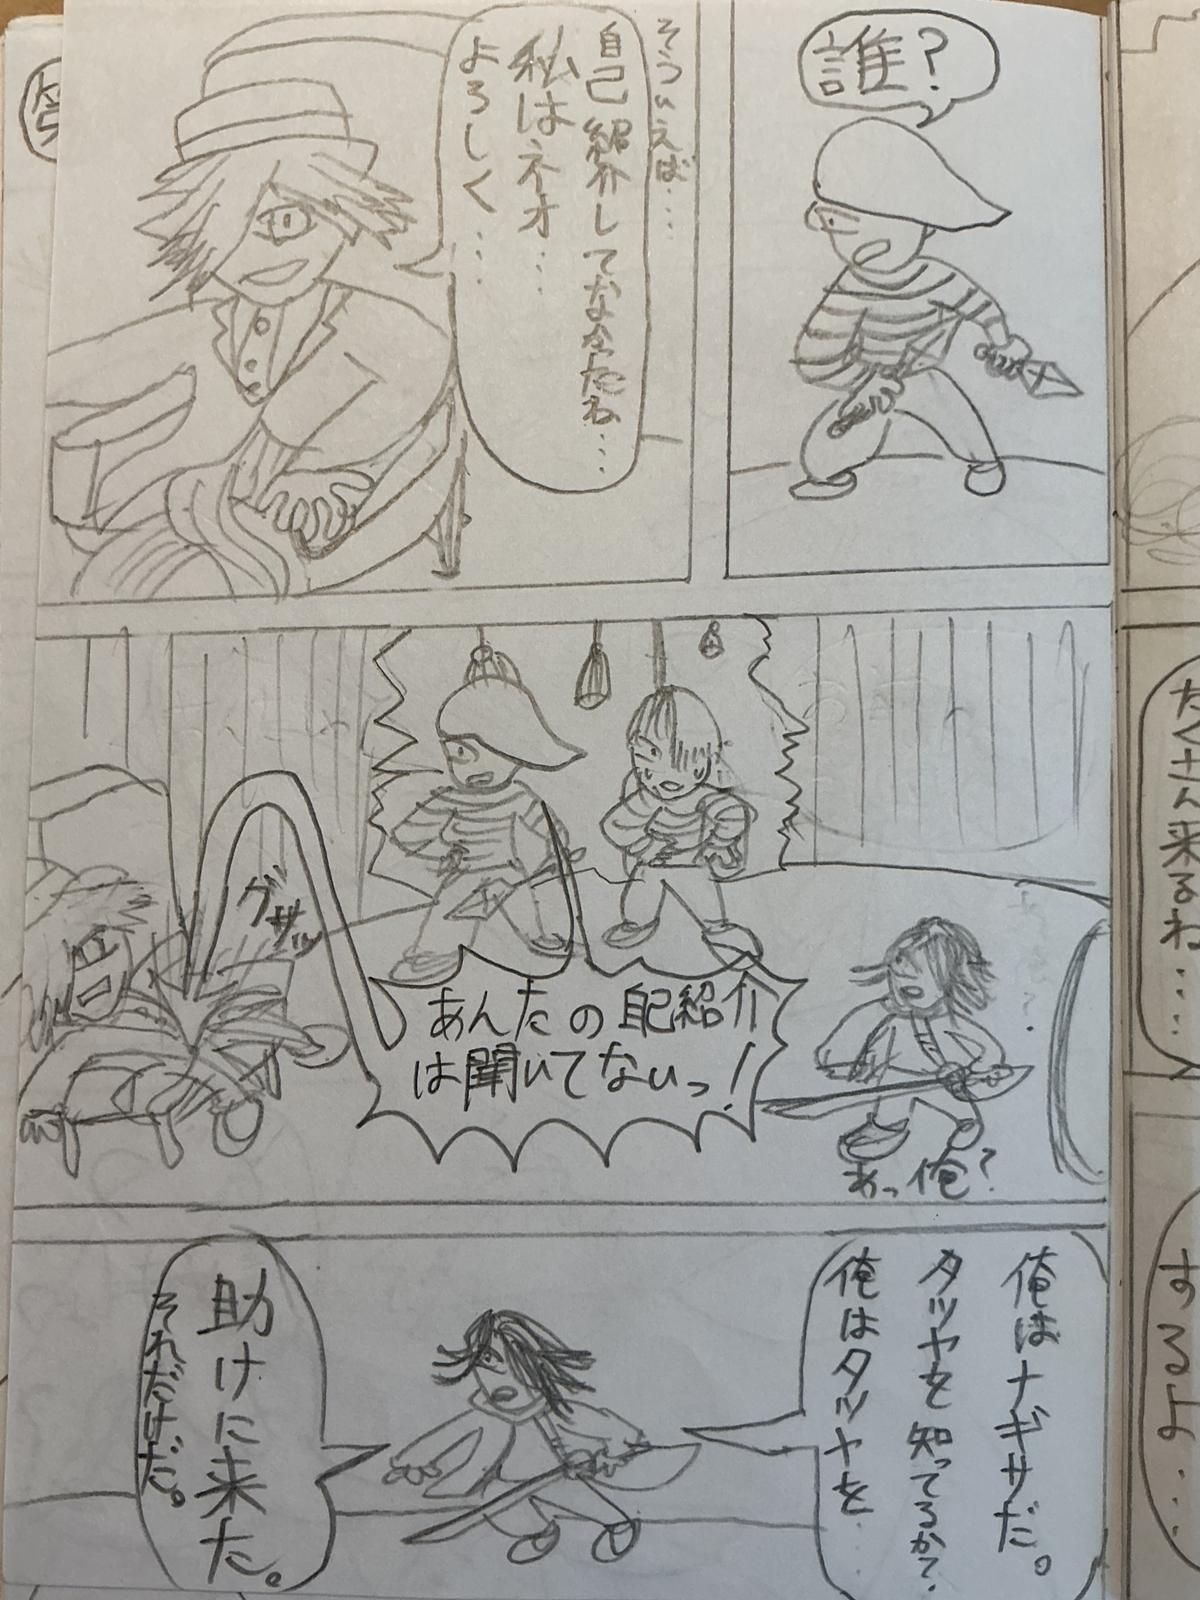 誰?
そういえば…
自己紹介してなかったね…
私はネオ…
よろしく…
グサッ
あんたの自己紹介
は聞いてないっ!
あっ俺?
俺はナギサだ。
タツヤを知ってるか?
俺はタツヤを…
助けに来た。
それだけだ。
たくさん来るね…
するよ…